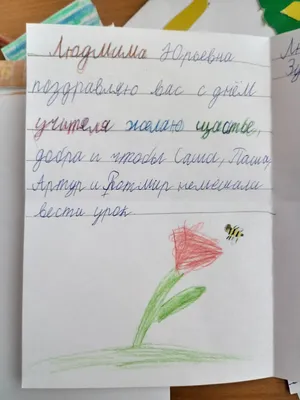 Людмима Юрьевна
поздравляю вас с днём
учителя желаю щастве,
добра и чтобы Саша, Паша,
Артур и Ратмир немешали
вести урок